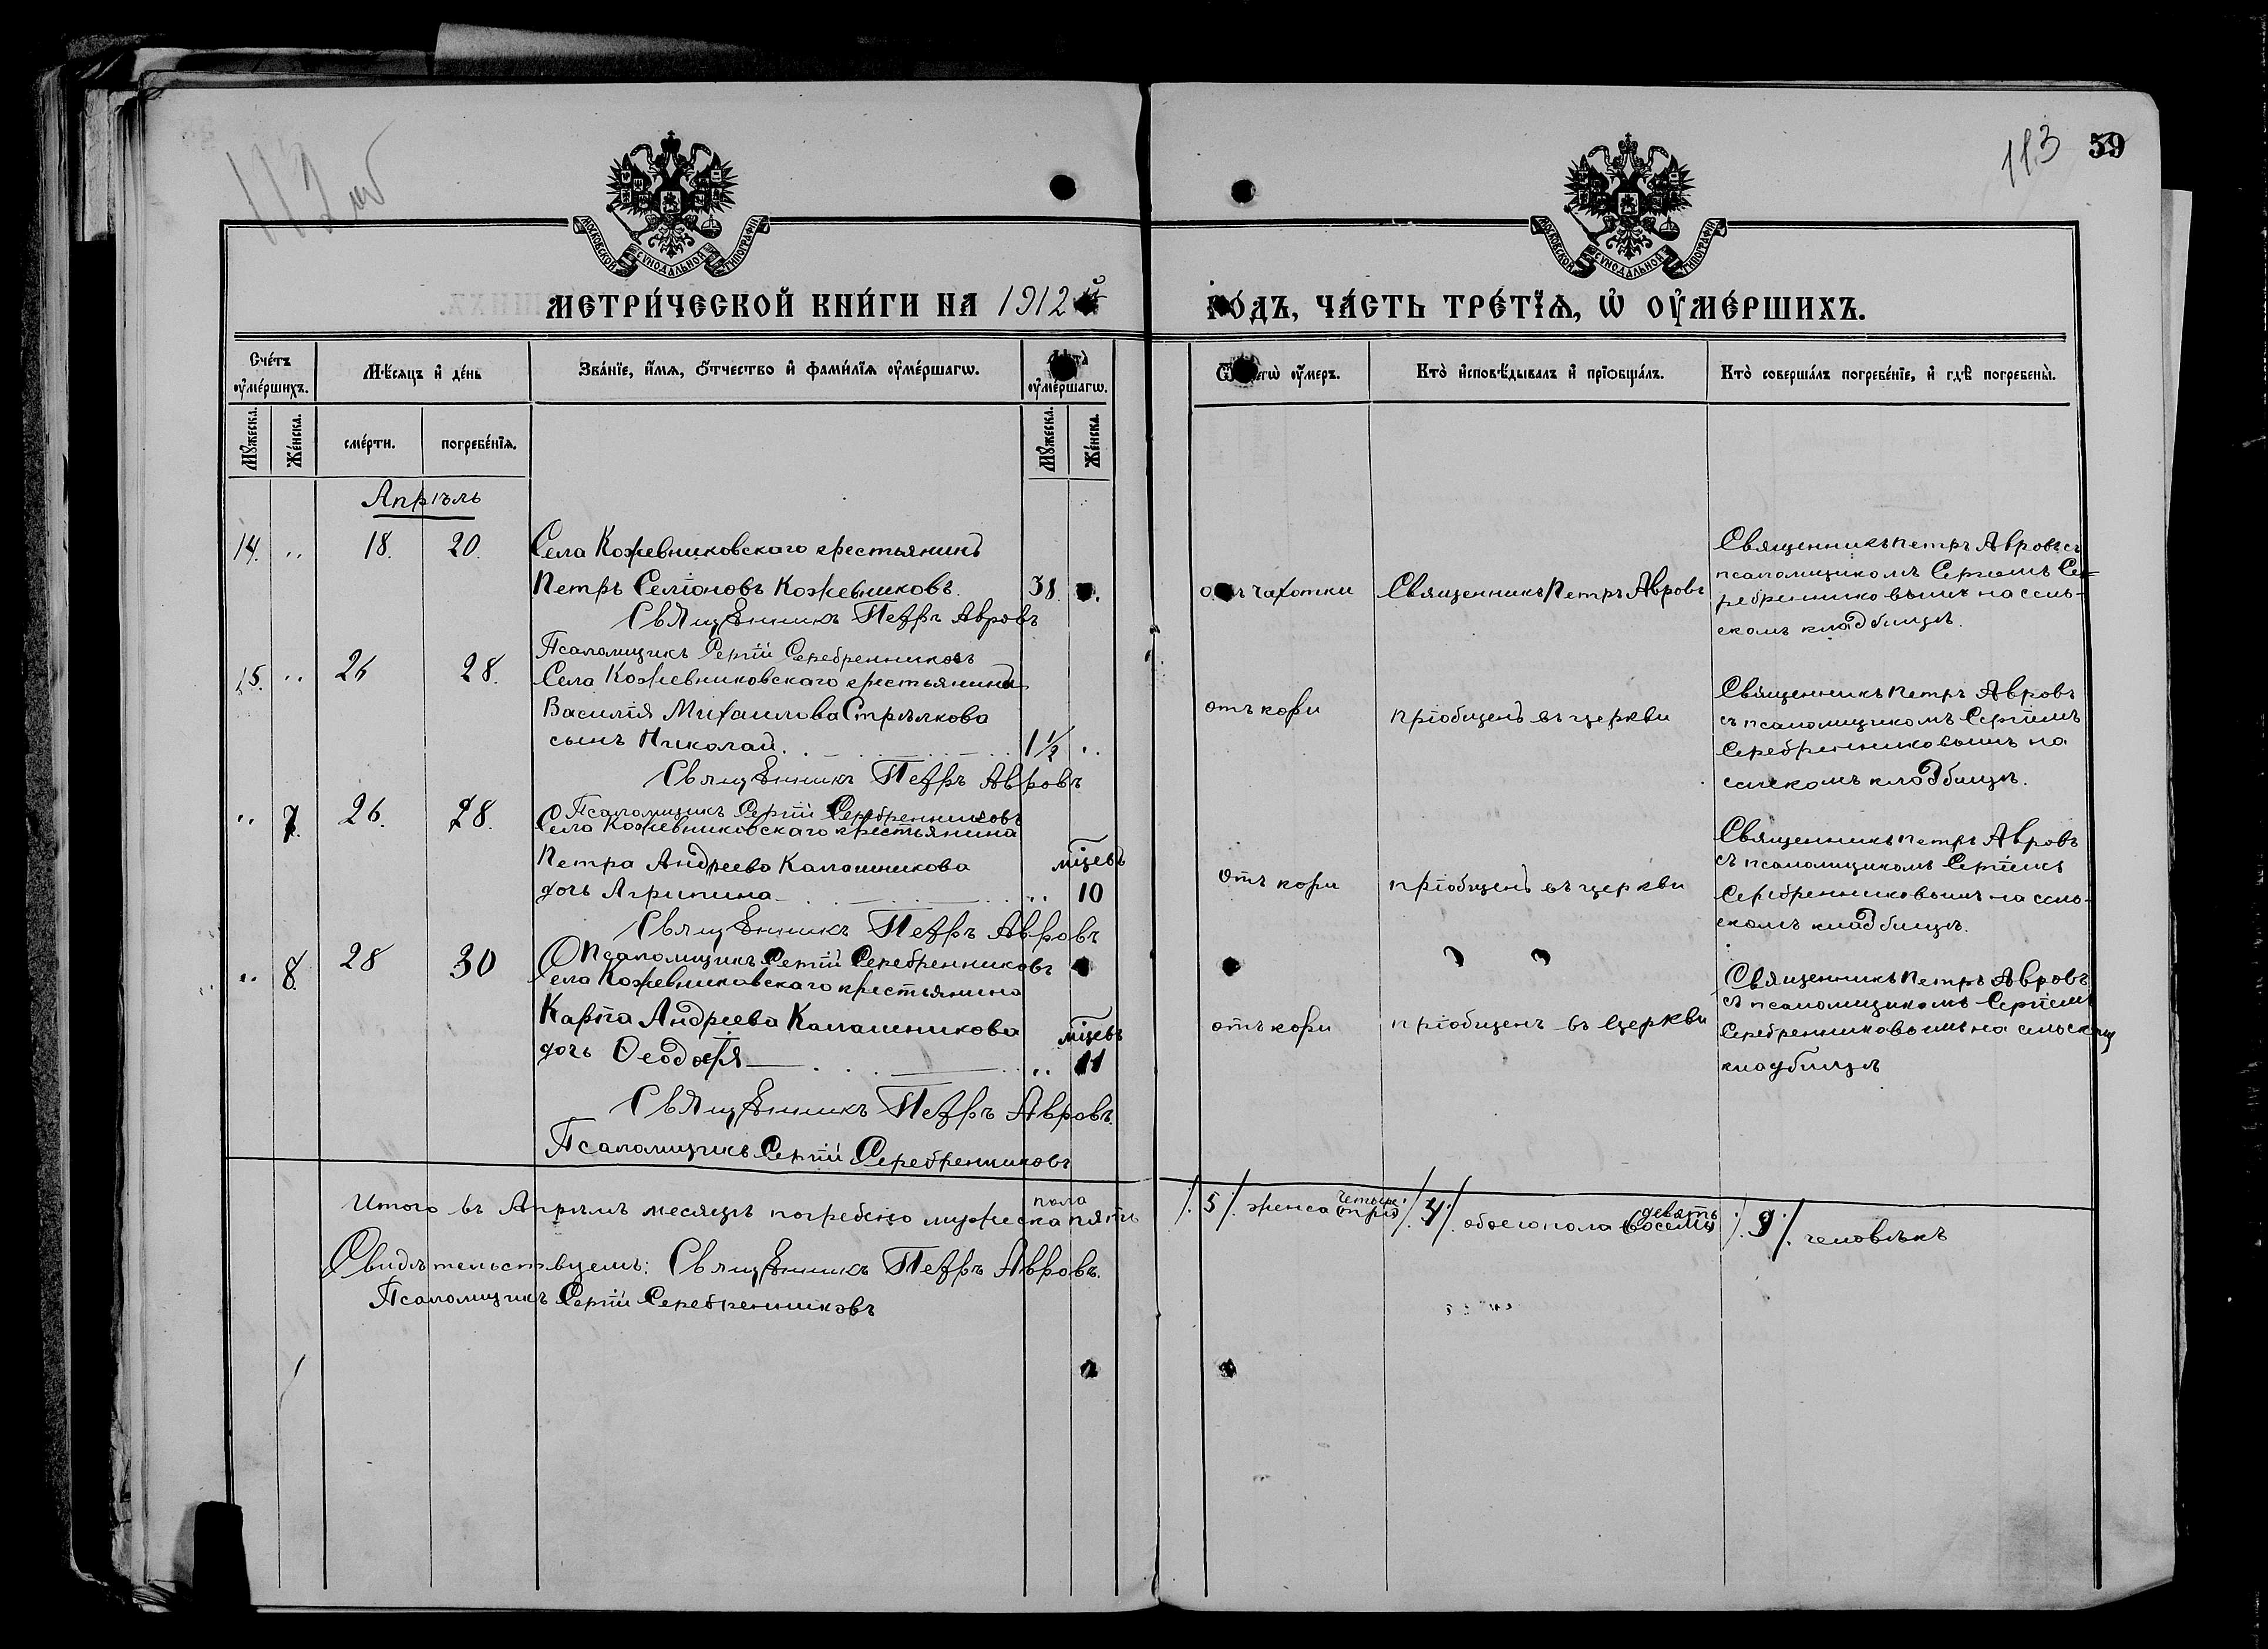 112 об
113 59
МОСКОВСКОЙ СѴНОДАЛЬНОЙ ТИПОГРАФІИ
МОСКОВСКОЙ СѴНОДАЛЬНОЙ ТИПОГРАФІИ
МЕТРИ́ЧЕСКОЙ КНИ́ГИ НА 1912 й
ГО́ДЪ, ЧА́СТЬ ТРЕ́ТЇѦ, Ѡ҆ ОУ҆МЕ́РШИХЪ.
Сче́тъ оу҆ме́ршихъ.
Мꙋ́жеска.
Же́нска.
Мѣ́сѧцъ и҆ де́нь
сме́рти.
погребе́нїѧ.
Зва́нїе, и҆́мѧ, ѻ҆́тчество и҆ фами́лїѧ оу҆ме́ршагѡ.
оу҆ме́ршагѡ.
Мꙋ́жеска.
Же́нска.
оу҆́меръ.
Кто̀ и҆сповѣ́дывалъ и҆ прїѡбща́лъ.
Кто̀ соверша́лъ погребе́нїе, и҆ гдѣ̀ погребены̀.
Апрѣль
14. „ 18. 20. Села Кожевниковскаго крестьянинъ
Петръ Семіоновъ Кожевниковъ. 38.
Священникъ Петръ Авровъ
Псаломщикъ Сергій Серебренниковъ
отъ чахотки
Священникъ Петръ Авровъ
Священникъ Петръ Авровъ съ
псаломщикомъ Сергіемъ Се=
ребренниковымъ на сель-
скомъ кладбищѣ.
15. „ 26 28. Села Кожевниковскаго крестьянина
Василія Михаилова Стрѣлкова
сынъ Николай. 1½ „
Священникъ Петръ Авровъ
Псаломщикъ Сергій Серебренниковъ
отъ кори
пріобщенъ въ церкви
Священникъ Петръ Авровъ
съ псаломщикомъ Сергіемъ
Серебренниковымъ на
сельскомъ кладбищѣ.
„ 7. 26. 28. Села Кожевниковскаго крестьянина
Петра Андреева Калашникова мѣцевъ
дочь Агрипина „ 10
Священникъ Петръ Авровъ
Псаломщикъ Сергій Серебренниковъ
Отъ кори
пріобщенъ въ церкви
Священникъ Петръ Авровъ
съ псаломщикомъ Сергіемъ
Серебренниковымъ на сель-
скомъ кладбищѣ.
„ 8. 28 30 Села Кожевниковскаго крестьянина
Карпа Андреева Калашникова мѣцевъ
дочь „ 11
Священникъ Петръ Авровъ.
Псаломщикъ Сергій Серебренниковъ
отъ кори
пріобщенъ въ Церкви
Священникъ Петръ Авровъ
съ псаломщикомъ Сергіемъ
Серебренниковымъ на сельском
кладбищѣ
Итого въ Апрѣлѣ месяцѣ погребено мужеска пола пять /.5/. женска четыре (три) /.4/. обоего пола девять (восемь) /.9/. человѣкъ
Свидѣтельствуемъ: Священникъ Петръ Авровъ.
Псаломщикъ Сергій Серебренниковъ